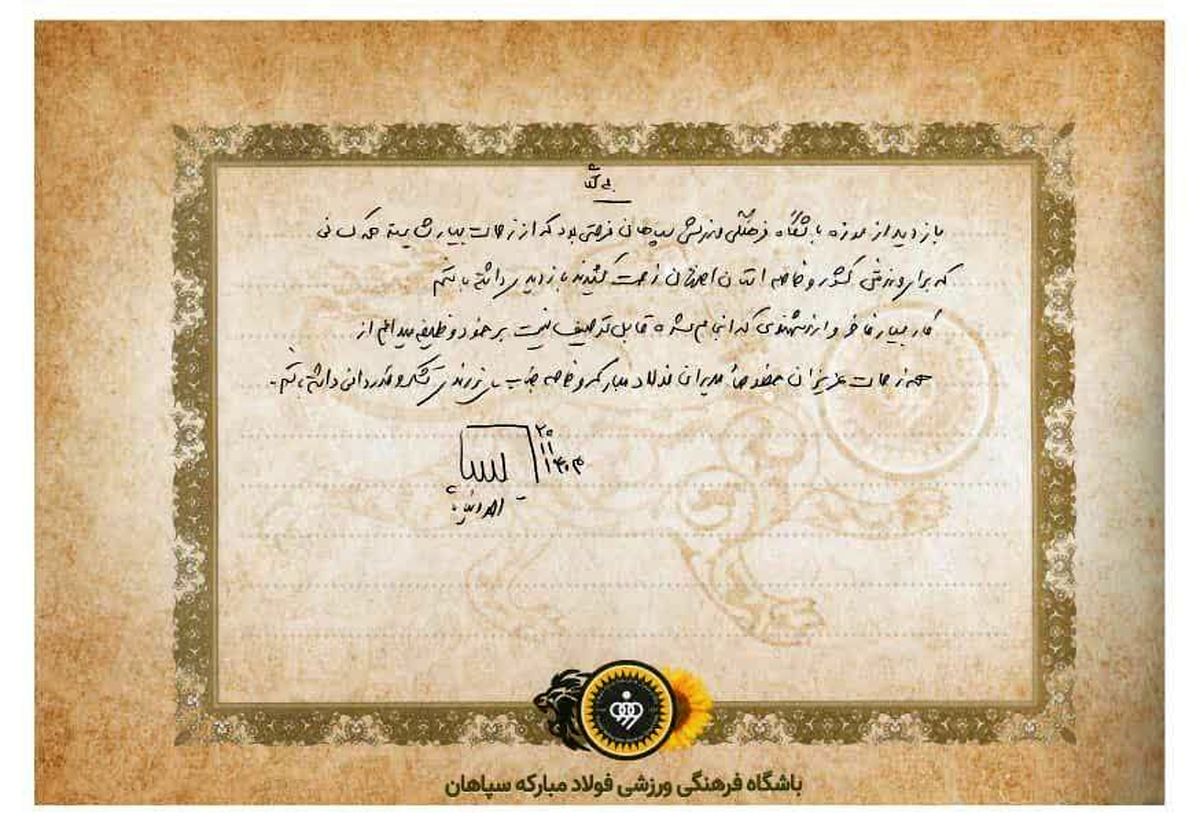 بازدید از موزه باشگاه فرهنگی ورزشی سپاهان فرصتی بود که از زحمات بسیار شایسته همه کسانی
که برای ورزش کشور و خاصه استان اصفهان زحمت کشیدند بازدیدی داشته باشم
کار بسیار فاخر و ارزشمندی که انجام شده قابل توصیف نیست بر خود وظیفه میدانم از
همه زحمات عزیزان خصوصاً مدیران فولاد مبارکه و خاصه جناب تشکر و قدردانی داشته باشم.
۲۰
۱۱
۱۴۰۳
باشگاه فرهنگی ورزشی فولاد مبارکه سپاهان